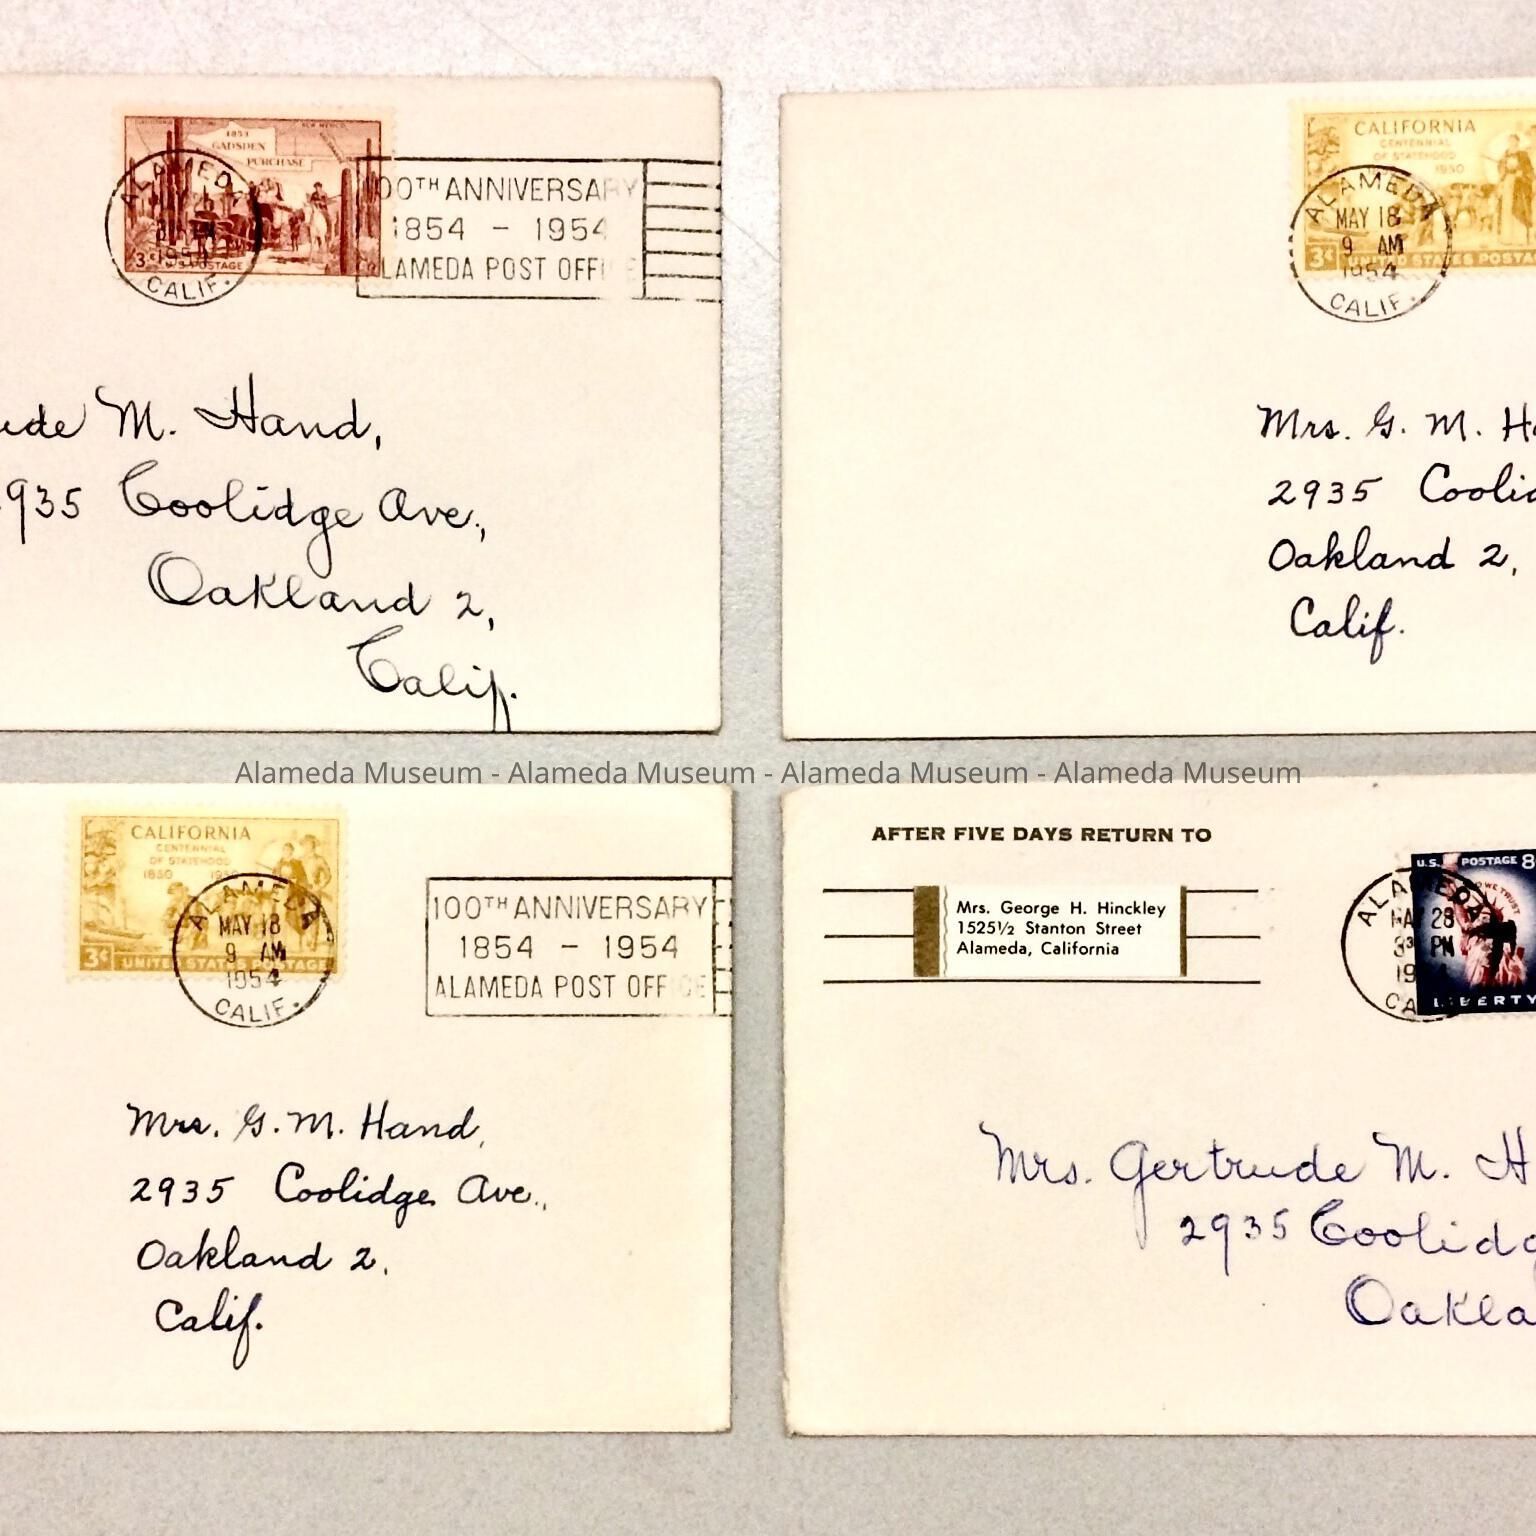 1853
GADSDEN
PURCHASE
NEW MEXICO
3¢ U.S. POSTAGE
ALAMEDA
CALIF.
100TH ANNIVERSARY
1854 - 1954
ALAMEDA POST OFFICE
M. Hand,
935 Coolidge Ave.,
Oakland 2,
Calif.
CALIFORNIA
CENTENNIAL
OF STATEHOOD
1950
3¢ UNITED STATES POSTA
ALAMEDA
MAY 18
9 AM
1954
CALIF.
Mrs. G. M. Ha
2935 Coolid
Oakland 2,
Calif.
Alameda Museum - Alameda Museum - Alameda Museum - Alameda Museum
CALIFORNIA
CENTENNIAL
OF STATEHOOD
1850 1950
3¢ UNITED STATES POSTAGE
ALAMEDA
MAY 18
9 AM
1954
CALIF.
100TH ANNIVERSARY
1854 - 1954
ALAMEDA POST OFFICE
Mrs. G. M. Hand,
2935 Coolidge Ave.,
Oakland 2,
Calif.
AFTER FIVE DAYS RETURN TO
Mrs. George H. Hinckley
1525½ Stanton Street
Alameda, California
U.S. POSTAGE 8
WE TRUST
LIBERTY
ALAMEDA
MAY 28
3³⁰ PM
19
CA
Mrs. Gertrude M. H
2935 Coolidg
Oakla